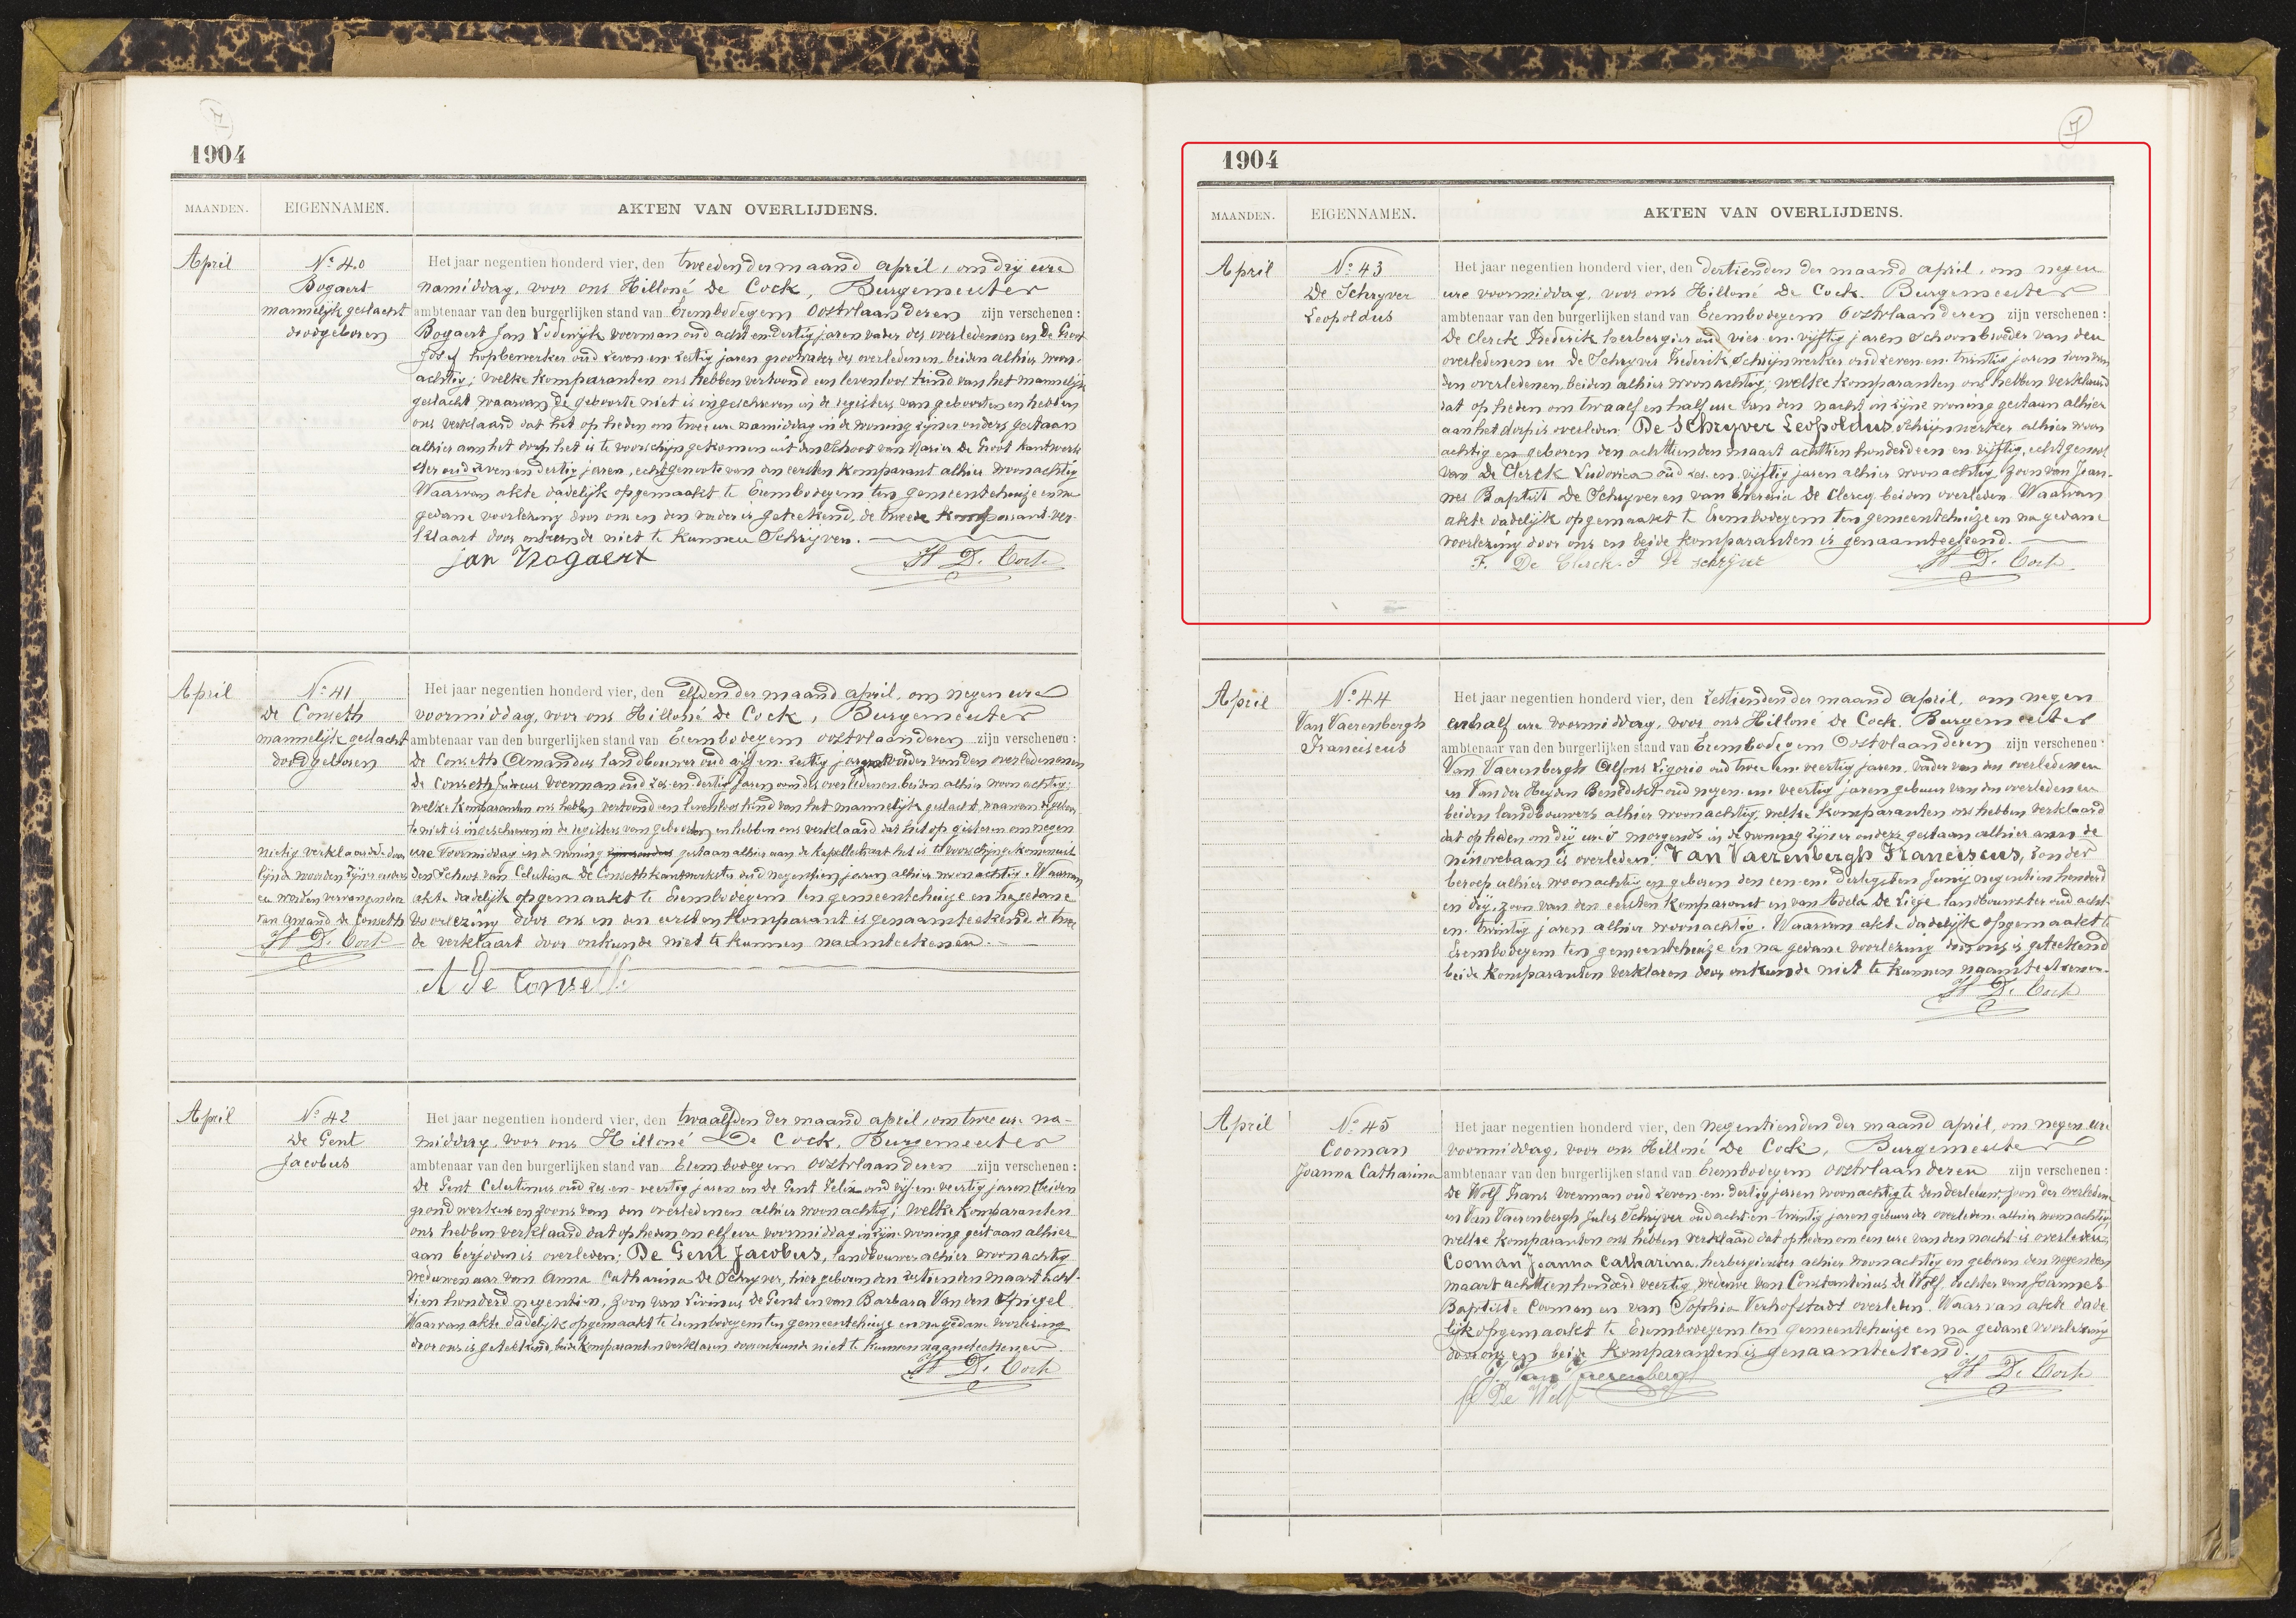 7
1904
MAANDEN. EIGENNAMEN. AKTEN VAN OVERLIJDENS.
April
No 40
Bogaert
mannelijk geslacht
doodgeboren
Het jaar negentien honderd vier, den tweeden der maand april, om drij ure
namiddag, voor ons Hilloné De Cock, Burgemeester
ambtenaar van den burgerlijken stand van Erembodegem Oostvlaanderen zijn verschenen:
Bogaert Jan Lodewijk voerman oud acht en dertig jaren vader des overledenen en De Groot
Josef hopbewerker oud zeven en zestig jaren grootvader des overledenen, beiden alhier woon-
achtig; welke komparanten ons hebben vertoond een levenloos kind van het mannelijk
geslacht, waarvan de geboorte niet is ingeschreven in de registers van geboorten en hebben
ons verklaard dat het op heden om twee ure namiddag in de woning zijner ouders gestaan
alhier aan het dorp het is te voorschijn gekomen uit den schoot van Maria De Groot kantwerk-
ster oud zeven en dertig jaren, echtgenoote van den eersten komparant alhier woonachtig
Waarvan akte dadelijk opgemaakt te Erembodegem ten gemeentehuize en na
gedane voorlezing door ons en den vader is geteekend, de tweede komparant ver-
klaart door onkunde niet te kunnen schrijven.
jan Bogaert H D. Cock
April
No 41
De Conseth
mannelijk geslacht
doodgeboren
Het jaar negentien honderd vier, den elfden der maand april, om negen ure
voormiddag, voor ons Hilloné De Cock, Burgemeester
ambtenaar van den burgerlijken stand van Erembodegem oostvlaanderen zijn verschenen:
De Conseth Amandus landbouwer oud vijf en zestig jaren grootvader van den overledenen en
De Conseth Judocus voerman oud zes en dertig jaren oom des overledenen beiden alhier woonachtig;
welke komparanten ons hebben vertoond een levenloos kind van het mannelijk geslacht, waarvan de geboor-
te niet is ingeschreven in de registers van geboorten en hebben ons verklaard dat het op gisteren om negen
ure voormiddag in de woning zijner ouders gestaan alhier aan de kapellestraat het is te voorschijn gekomen uit
den schoot van Celestina De Conseth kantwerkster oud negentien jaren alhier woonachtig. Waarvan
akte dadelijk opgemaakt te Erembodegem ten gemeentehuize en na gedane
voorlezing door ons en den eersten komparant is genaamteekend, de twee-
de verklaart door onkunde niet te kunnen naamteekenen.
nietig verklaard de
lijnd woorden zijner ouders
en worden vervangen door
van Amand De Conseth
H D. Cock
A De Conseth
April
No 42
De Gent
Jacobus
Het jaar negentien honderd vier, den twaalfden der maand april, om twee ure na-
middag, voor ons Hilloné De Cock, Burgemeester
ambtenaar van den burgerlijken stand van Erembodegem oostvlaanderen zijn verschenen:
De Gent Celestinus oud zes-en-veertig jaren en De Gent Felix oud vijf-en-veertig jaren beiden
grondwerkers en zoons van den overledenen alhier woonachtig; welke komparanten
ons hebben verklaard dat op heden om elf ure voormiddag in zijne woning gestaan alhier
aan is overleden; De Gent Jacobus, landbouwer alhier woonachtig
weduwenaar van Anna Catharina De Schryver, hier geboren den zestienden maart acht-
tien honderd negentien, zoon van Livinus De Gent en van Barbara Van den Spiegel
Waarvan akte dadelijk opgemaakt te Erembodegem ten gemeentehuize en na gedane voorlezing
door ons is geteekend, beide komparanten verklaren door onkunde niet te kunnen naamteekenen
H D. Cock
7
1904
MAANDEN. EIGENNAMEN. AKTEN VAN OVERLIJDENS.
April
No 43
De Schryver
Leopoldus
Het jaar negentien honderd vier, den dertienden der maand april, om negen
ure voormiddag, voor ons Hilloné De Cock. Burgemeester
ambtenaar van den burgerlijken stand van Erembodegem Oostvlaanderen zijn verschenen:
De Clerck Frederik herbergier oud vier-en-vijftig jaren schoonbroeder van den
overledenen en De Schryver Frederik, schrijnwerker oud zeven-en-twintig jaren zoon van
den overledenen, beiden alhier woonachtig; welke komparanten ons hebben verklaard
dat op heden om twaalf en half ure van den nacht in zijne woning gestaan alhier
aan het dorp is overleden; De Schryver Leopoldus, schrijnwerker alhier woon
achtig en geboren den achttienden maart achttien honderd een en vijftig, echtgenoot
van De Clerck Ludovica oud zes-en-vijftig jaren alhier woonachtig, zoon van Joan-
nes Baptist De Schryver en van Theresia De Clercq beiden overleden. Waarvan
akte dadelijk opgemaakt te Erembodegem ten gemeentehuize en na gedane
voorlezing door ons en beide komparanten is genaamteekend.
F. De Clerck. F De schrijver H D. Cock
April
No 44
Van Vaerenbergh
Franciscus
Het jaar negentien honderd vier, den zestienden der maand april, om negen
en half ure voormiddag, voor ons Hilloné De Cock. Burgemeester
ambtenaar van den burgerlijken stand van Erembodegem Oostvlaanderen zijn verschenen:
Van Vaerenbergh Alfons Ligorio oud twee en veertig jaren, vader van den overledenen
en Van der Heyden Benedikt oud negen-en-veertig jaren gebuur van den overledenen
beiden landbouwers alhier woonachtig, welke komparanten ons hebben verklaard
dat op heden om drij ure 's morgends in de woning zijner ouders gestaan alhier aan de
ninovebaan is overleden: Van Vaerenbergh Franciscus, zonder
beroep alhier woonachtig en geboren den een-en-dertigsten Junij negentien honderd
en drij, zoon van den eersten komparant en van Adela De Liege landbouwster oud acht-
en-twintig jaren alhier woonachtig. Waarvan akte dadelijk opgemaakt te
Erembodegem ten gemeentehuize en na gedane voorlezing door ons is geteekend
beide komparanten verklaren door onkunde niet te kunnen naamteekenen.
H D. Cock
April
No 45
Cooman
Joanna Catharina
Het jaar negentien honderd vier, den negentienden der maand april, om negen ure
voormiddag, voor ons Hilloné De Cock, Burgemeester
ambtenaar van den burgerlijken stand van Erembodegem oostvlaanderen zijn verschenen:
De Wolf Frans voerman oud zeven-en-dertig jaren woonachtig te denderleeuw, zoon der overledene
en Van Vaerenbergh Jules Schrijver oud acht-en-twintig jaren gebuur der overledene alhier woonachtig
welke komparanten ons hebben verklaard dat op heden om een ure van den nacht is overleden;
Cooman Joanna Catharina, herbergierster alhier woonachtig en geboren den negenden
maart achttien honderd veertig, weduwe van Constantinus De Wolf, dochter van Joannes
Baptiste Cooman en van Sophia Verhofstadt overleden. Waarvan akte dade
lijk opgemaakt te Erembodegem ten gemeentehuize en na gedane voorlezing
door ons en beide komparanten is genaamteekend.
J. Van Vaerenbergh H D. Cock
F De Wolf